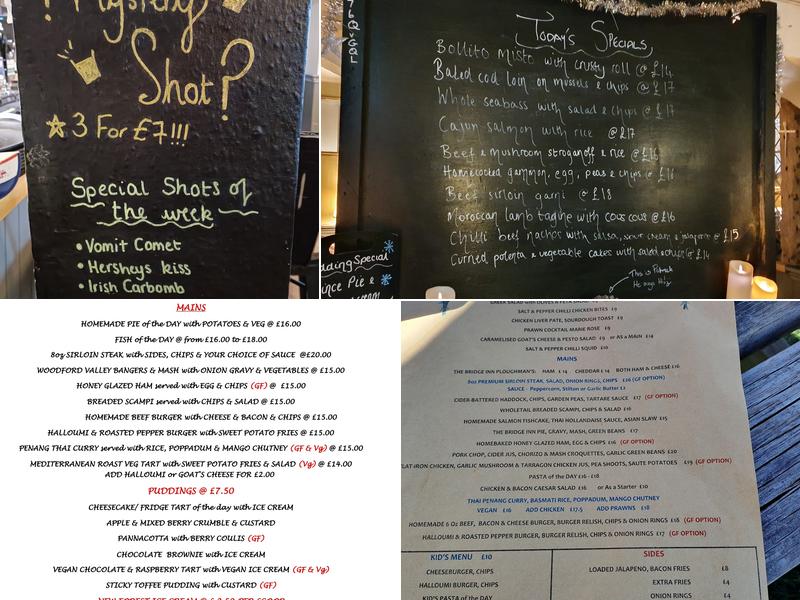 Mystery
Shot?
3 For £7!!!
Special Shots of
the week
• Vomit Comet
• Hersheys kiss
• Irish Carbomb
Today's Specials
Bollito Misto with crusty roll @ £14
Baked cod loin on mussels & chips @ £17
Whole seabass with salad & chips @ £17
Cajun salmon with rice @ £17
Beef & mushroom stroganoff & rice @ £16
Homecooked gammon, egg, peas & chips @ £16
Beef sirloin @ £18
Moroccan lamb tagine with cous cous @ £16
Chilli beef nachos with salsa, sour cream & jalapeno @ £15
Curried polenta & vegetable cakes with salad & chips @ £14
This is Patrick
He says Hi
MAINS
HOMEMADE PIE of the DAY with POTATOES & VEG @ £16.00
FISH of the DAY @ from £16.00 to £18.00
8oz SIRLOIN STEAK with SIDES, CHIPS & YOUR CHOICE OF SAUCE @£20.00
WOODFORD VALLEY BANGERS & MASH with ONION GRAVY & VEGETABLES @ £15.00
HONEY GLAZED HAM served with EGG & CHIPS (GF) @ £15.00
BREADED SCAMPI served with CHIPS & SALAD @ £15.00
HOMEMADE BEEF BURGER with CHEESE & BACON & CHIPS @ £15.00
HALLOUMI & ROASTED PEPPER BURGER with SWEET POTATO FRIES @ £15.00
PENANG THAI CURRY served with RICE, POPPADUM & MANGO CHUTNEY (GF & Vg) @ £15.00
MEDITERRANEAN ROAST VEG TART with SWEET POTATO FRIES & SALAD (Vg) @ £14.00
ADD HALLOUMI or GOAT'S CHEESE FOR £2.00
PUDDINGS @ £7.50
CHEESECAKE/ FRIDGE TART of the day with ICE CREAM
APPLE & MIXED BERRY CRUMBLE & CUSTARD
PANNACOTTA with BERRY COULIS (GF)
CHOCOLATE BROWNIE with ICE CREAM
VEGAN CHOCOLATE & RASPBERRY TART with VEGAN ICE CREAM (GF & Vg)
STICKY TOFFEE PUDDING with CUSTARD (GF)
NEW FOREST ICE CREAM @ £ 2.50 PER SCOOP
SALT & PEPPER CHILLI CHICKEN BITES £9
CHICKEN LIVER PATE, SOURDOUGH TOAST £9
PRAWN COCKTAIL MARIE ROSE £9
CARAMELISED GOAT'S CHEESE & PESTO SALAD £9 or AS A MAIN £14
SALT & PEPPER CHILLI SQUID £10
MAINS
THE BRIDGE INN PLOUGHMAN'S: HAM £14 CHEDDAR £14 BOTH HAM & CHEESE £16
8oz PREMIUM SIRLOIN STEAK, SALAD, ONION RINGS, CHIPS £26 (GF OPTION)
SAUCE - Peppercorn, Stilton or Garlic Butter £2
CIDER-BATTERED HADDOCK, CHIPS, GARDEN PEAS, TARTARE SAUCE £17 (GF OPTION)
WHOLETAIL BREADED SCAMPI, CHIPS & SALAD £16
HOMEMADE SALMON FISHCAKE, THAI HOLLANDAISE SAUCE, ASIAN SLAW £15
THE BRIDGE INN PIE, GRAVY, MASH, GREEN BEANS £17
HOMEBAKED HONEY GLAZED HAM, EGG & CHIPS £16 (GF OPTION)
PORK CHOP, CIDER JUS, CHORIZO & MASH CROQUETTES, GARLIC GREEN BEANS £20
FLAT-IRON CHICKEN, GARLIC MUSHROOM & TARRAGON CHICKEN JUS, PEA SHOOTS, SAUTE POTATOES £19 (GF OPTION)
PASTA of the DAY £16 - £18
CHICKEN & BACON CAESAR SALAD £16 or As a Starter £10
THAI PENANG CURRY, BASMATI RICE, POPPADUM, MANGO CHUTNEY
VEGAN £16 ADD CHICKEN £17.5 ADD PRAWNS £18
HOMEMADE 6 Oz BEEF, BACON & CHEESE BURGER, BURGER RELISH, CHIPS & ONION RINGS £18 (GF OPTION)
HALLOUMI & ROASTED PEPPER BURGER, BURGER RELISH, CHIPS & ONION RINGS £17 (GF OPTION)
KID'S MENU £10
CHEESEBURGER, CHIPS
HALLOUMI BURGER, CHIPS
KID'S PASTA of the DAY
SIDES
LOADED JALAPENO, BACON FRIES £8
EXTRA FRIES £4
ONION RINGS £4